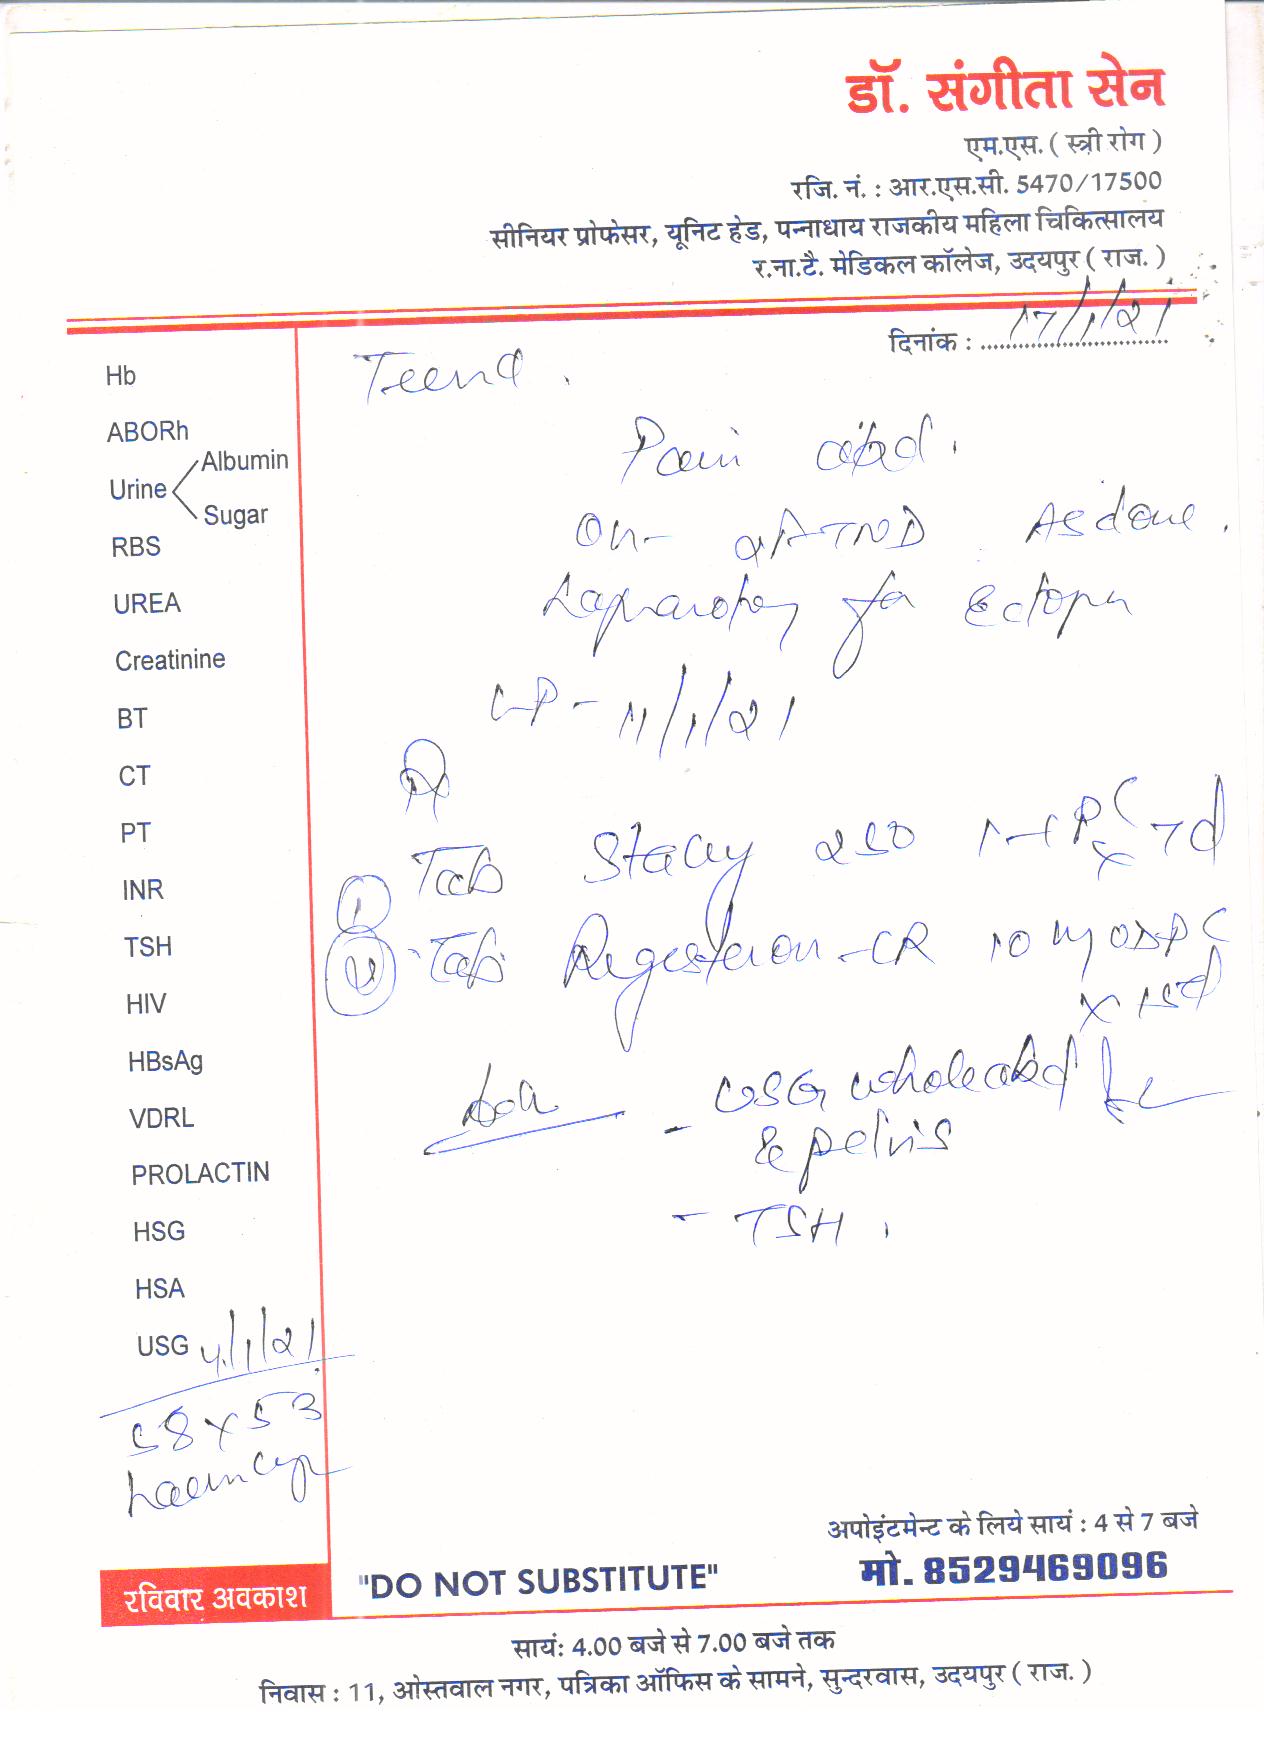 डॉ. संगीता सेन
एम.एस. ( स्त्री रोग )
रजि. नं. : आर.एस.सी. 5470/17500
सीनियर प्रोफेसर, यूनिट हेड, पन्नाधाय राजकीय महिला चिकित्सालय
र.ना.टै. मेडिकल कॉलेज, उदयपुर ( राज. )
दिनांक : 17/1/21
Teena.
Pain abd.
On - 2 FTND As done.
Laparotomy for Ectopic
LP - 11/1/21
Rx
(i) Tab 250 x 7d
(ii) Tab Regesteron-CR 10 mg OD PC
x 15d
Adv - USG whole abd
& pelvis
- TSH.
Hb
ABORh
Urine Albumin
Sugar
RBS
UREA
Creatinine
BT
CT
PT
INR
TSH
HIV
HBsAg
VDRL
PROLACTIN
HSG
HSA
USG 4/1/21
58 x 53
haem cyst
रविवार अवकाश
"DO NOT SUBSTITUTE"
अपोइंटमेन्ट के लिये सायं : 4 से 7 बजे
मो. 8529469096
सायं: 4.00 बजे से 7.00 बजे तक
निवास : 11, ओस्तवाल नगर, पत्रिका ऑफिस के सामने, सुन्दरवास, उदयपुर ( राज. )